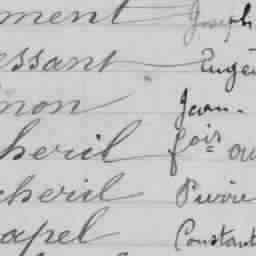 ment Joseph
essant Eugè
mon Jean.
heril fois ou
cheril Pierre
apel Constant